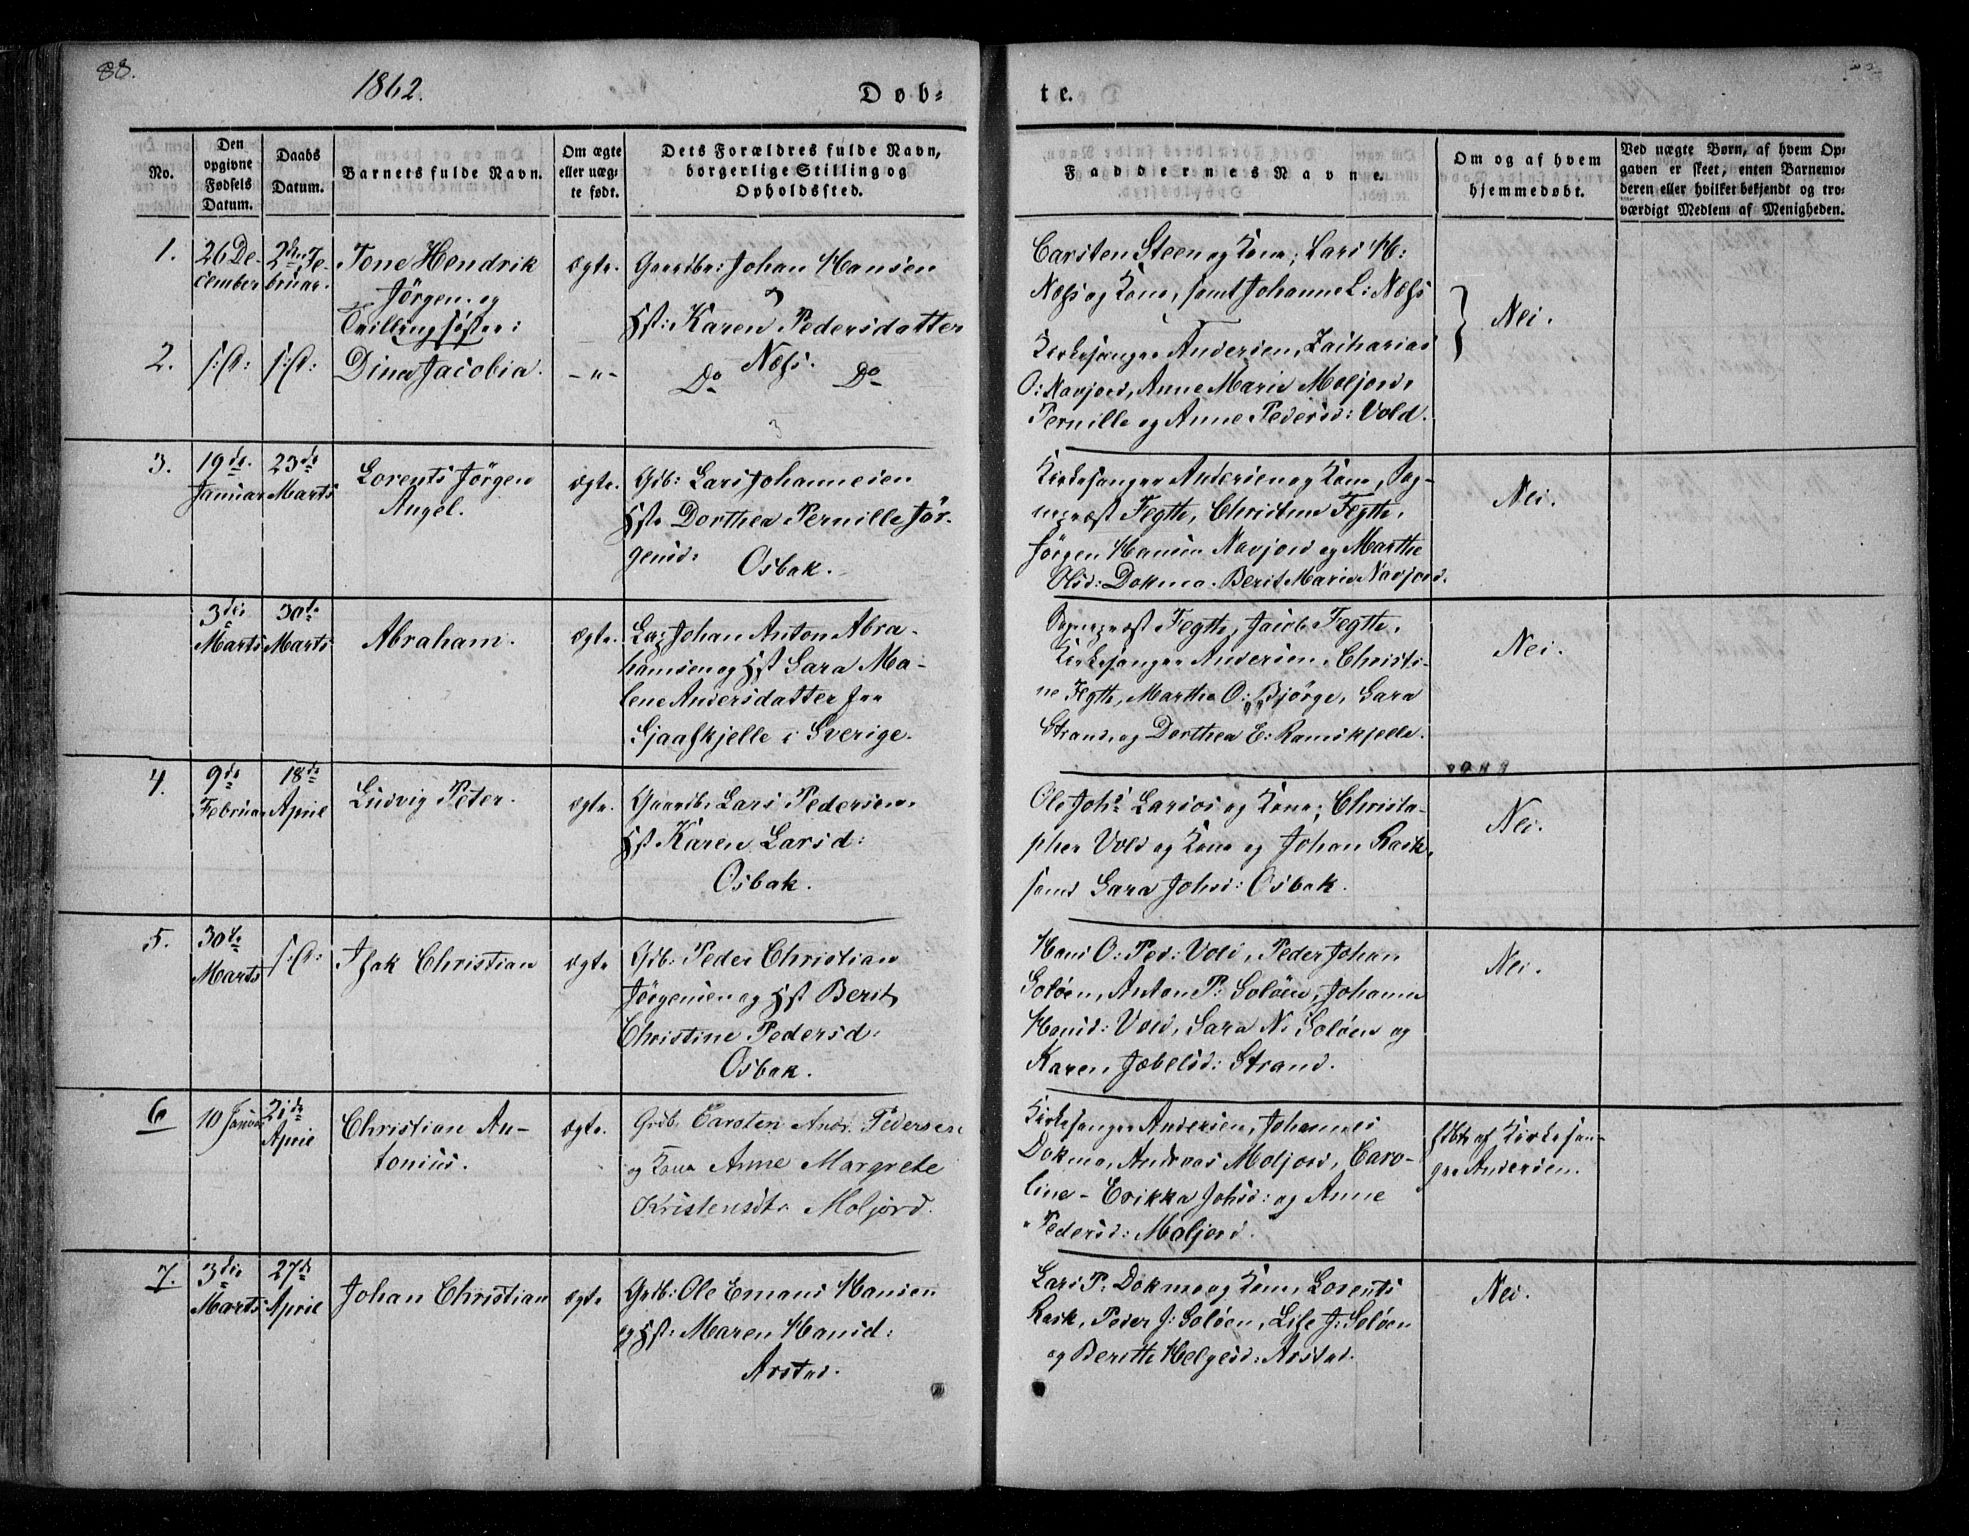 88.
1862.
Døb-
te.
No.
Den opgivne Fødsels Datum.
Daabs Datum.
Barnets fulde Navn.
Om ægte eller uæg-te født.
Dets Forældres fulde Navn,
borgerlige Stilling og
Opholdssted.
Faddernes Navne.
Om og af hvem
hjemmedøbt.
Ved uægte Børn, af hvem Op-
gaven er skeet, enten Barnemo-
deren eller hvilket bekjendt og tro-
værdigt Medlem af Menigheden.
1.
26 De-
cember
2den Fe-
bruar.
Tone Hendrik
Jørgen. og
Tvillingsøster:
ægte.
Gaardbr: Johan Hansen
Hst: Karen Pedersdatter
Næss.
Carsten Steen og Kone, Lars H:
Næss og Kone, samt Johanne L: Næss
Nei.
2.
s: D:
s: D:
Dina Jacobia.
- " -
Do Do
Kirkesanger Andersen, Zacharias
O: Navjord, Anne Marie Moljord,
Pernille og Anne Pedersd: Vold.
3.
19de
Januar
23de
Marts
Lorents Jørgen
Angel.
ægte.
Gdb: Lars Johannesen
Hst. Dorthea Pernille Jør-
gensd:
Osbak.
Kirkesanger Andersen og Kone, Sog-
nepræst Fegth, Christine Fegth,
Jørgen Hansen Navjord og Marthe
Olsd: Dokmo. Berit Marie Navjord.
Nei.
3die
Marts
30te
Marts
Abraham.
ægte.
Johan Anton Abra-
hamsen og Hst Sara Ma-
lene Andersdatter fra
Sjaafskjelle i Sverige.
Sognepræst Fegth, Jacob Fegth,
Kirkesanger Andersen, Christi-
ne Fegth, Martha O: Bjørge, Sara
Strand, og Dorthea E: Ramskjelle.
Nei.
4.
9de
Februar
18de
April
Ludvig Peter.
ægte.
Gaardb. Lars Pedersen.
Hst Karen Larsd:
Osbak.
Ole Johs Larsos og Kone; Christo-
pher Vold og Kone og Johan Rask,
samt Sara Johsd: Osbak.
Nei.
5.
30te
Marts
s: D:
Isak Christian
ægte
Gdb: Peder Christian
Jørgensen og Hst Berit
Christine Pedersd:
Osbak.
Hans O: Ped: Vold, Peder Johan
Soløen, Anton P: Soløen, Johanne
Hansd: Vold, Sara N: Soløen og
Karen Jæbelsd: Strand.
Nei.
6
10 Januar
21de
April
Christian An-
tonius.
ægte.
Grdb. Carsten Andr. Pedersen
og Kone Anne Margrete
Kristensdtr Moljord.
Kirkesanger Andersen, Johannes
Dokmo, Andreas Moljord, Caro-
line- Erikka Johsd: og Anne
Pedersd: Moljord.
af Kirkesan-
ger Andersen.
7.
3die
Marts
27de
April
Johan Christian
ægte
Grdb: Ole Emans Hansen
og Hst: Maren Hansd:
Arstad.
Lars P: Dokmo og Kone, Lorents
Rask, Peder J: Soløen, Lise J: Soløen
og Beritte Helgesd: Arstad.
Nei.